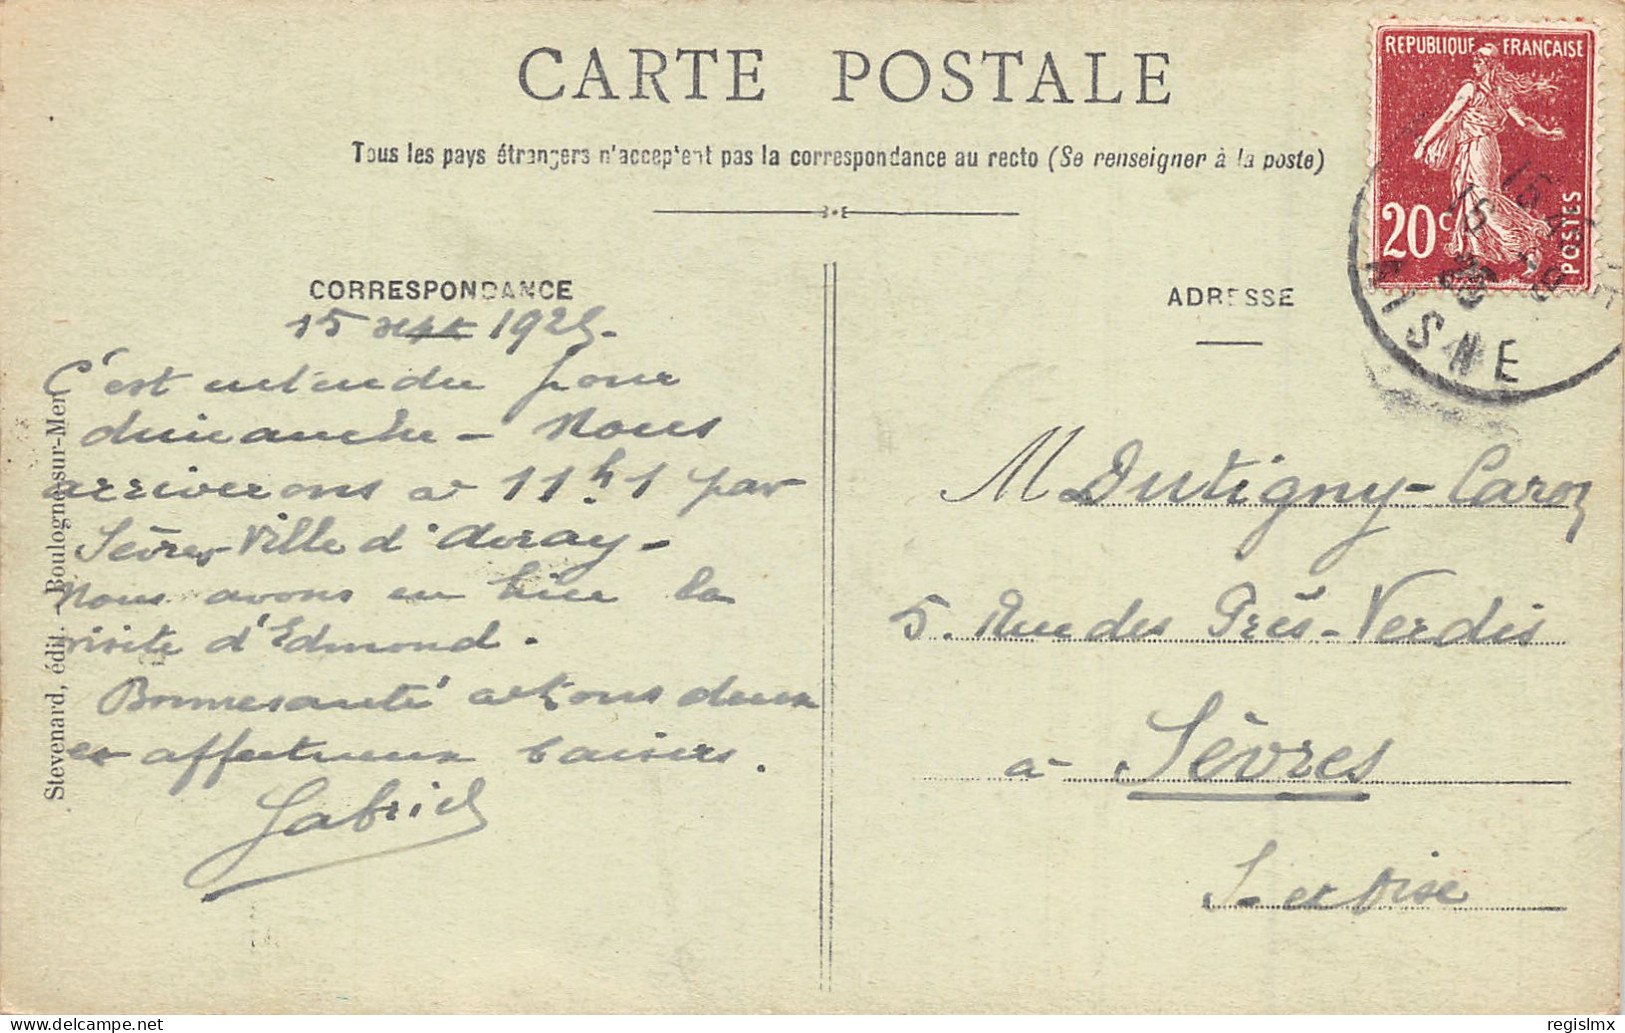 CARTE POSTALE
Tous les pays étrangers n'acceptent pas la correspondance au recto (Se renseigner à la poste)
REPUBLIQUE FRANÇAISE
20c
POSTES
15
15
AISNE
CORRESPONDANCE
15 1925.
C'est entendu pour
dimanche - Nous
arriverons à 11h1 par
Sèvres-Ville d'Avray -
Nous avons eu hier la
visite d'Edmond.
Bonne santé à tous deux
et affectueux baisers.
Gabriel
Stevenard, édit. - Boulogne-sur-Mer
ADRESSE
M Dutigny-Caron
5. Rue des Près-Verdis
à Sèvres
S. et Oise
regislmx